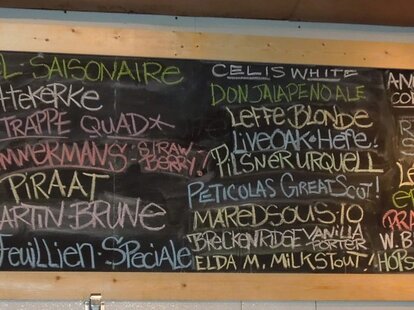 L SAISONAIRE
TEKERKE
TRAPPE QUAD*
MMERMANS: STRAW-
BERRY!
PIRAAT
ARTIN BRUNE
FEUILLIEN: SPECIALE
CELIS WHITE
DON JALAPENO ALE
LEFFE BLONDE
LIVEOAK-HEFE!
PILSNER URQUELL
PETICOLAS GREAT SCOT!
MAREDSOUS:10
BRECKENRIDGE VANILLA
PORTER
ELDA M. MILKSTOUT!
AN
CO
W. B
HOPS